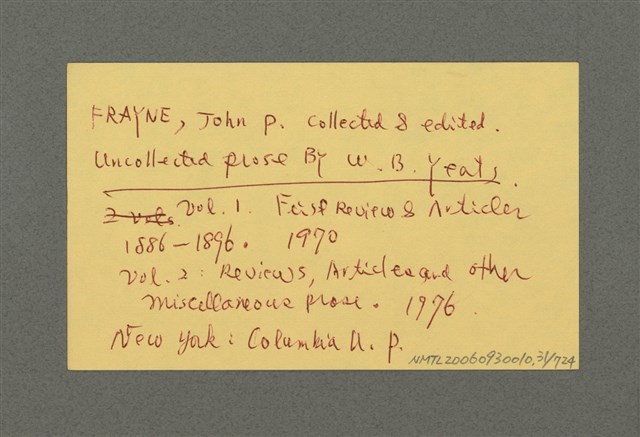 FRAYNE, John P. collected & edited.
Uncollected prose By W. B. Yeats.
2 vols. Vol. 1. First Reviews & Articles
1886-1896. 1970
Vol. 2: Reviews, Articles and other
Miscellaneous prose. 1976.
New York: Columbia U. P.
NMTL20060930010.31/724